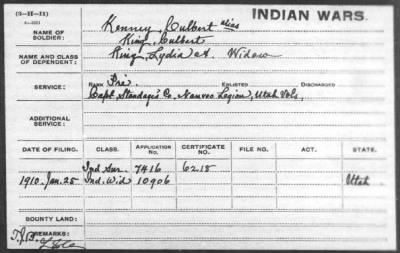 (3-H-11)
INDIAN WARS.
NAME OF SOLDIER: Kenney, Culbert alias
King, Culbert
NAME AND CLASS OF DEPENDENT: King, Lydia A. Widow
SERVICE: RANK Pvt. ENLISTED DISCHARGED
Capt Standage's Co. Nauvoo Legion, Utah Vols,
ADDITIONAL SERVICE:
DATE OF FILING. CLASS. APPLICATION NO. CERTIFICATE NO. FILE NO. ACT. STATE.
Ind Sur. 7416 6218
1910. Jan. 25 Ind. Wid 10906 Utah
BOUNTY LAND:
REMARKS:
T.J.B.